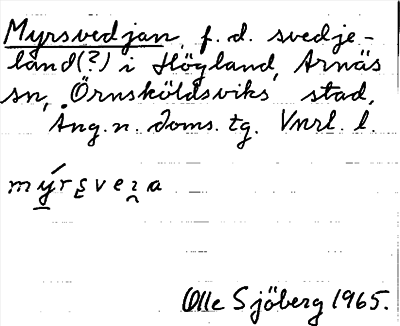 Myrsvedjan, f.d. svedje-
land(?) i Högland, Arnäs
sn, Örnsköldsviks stad,
Ång.n. doms. tg. Vnrl. l.
mýrsveɪa
Olle Sjöberg 1965.